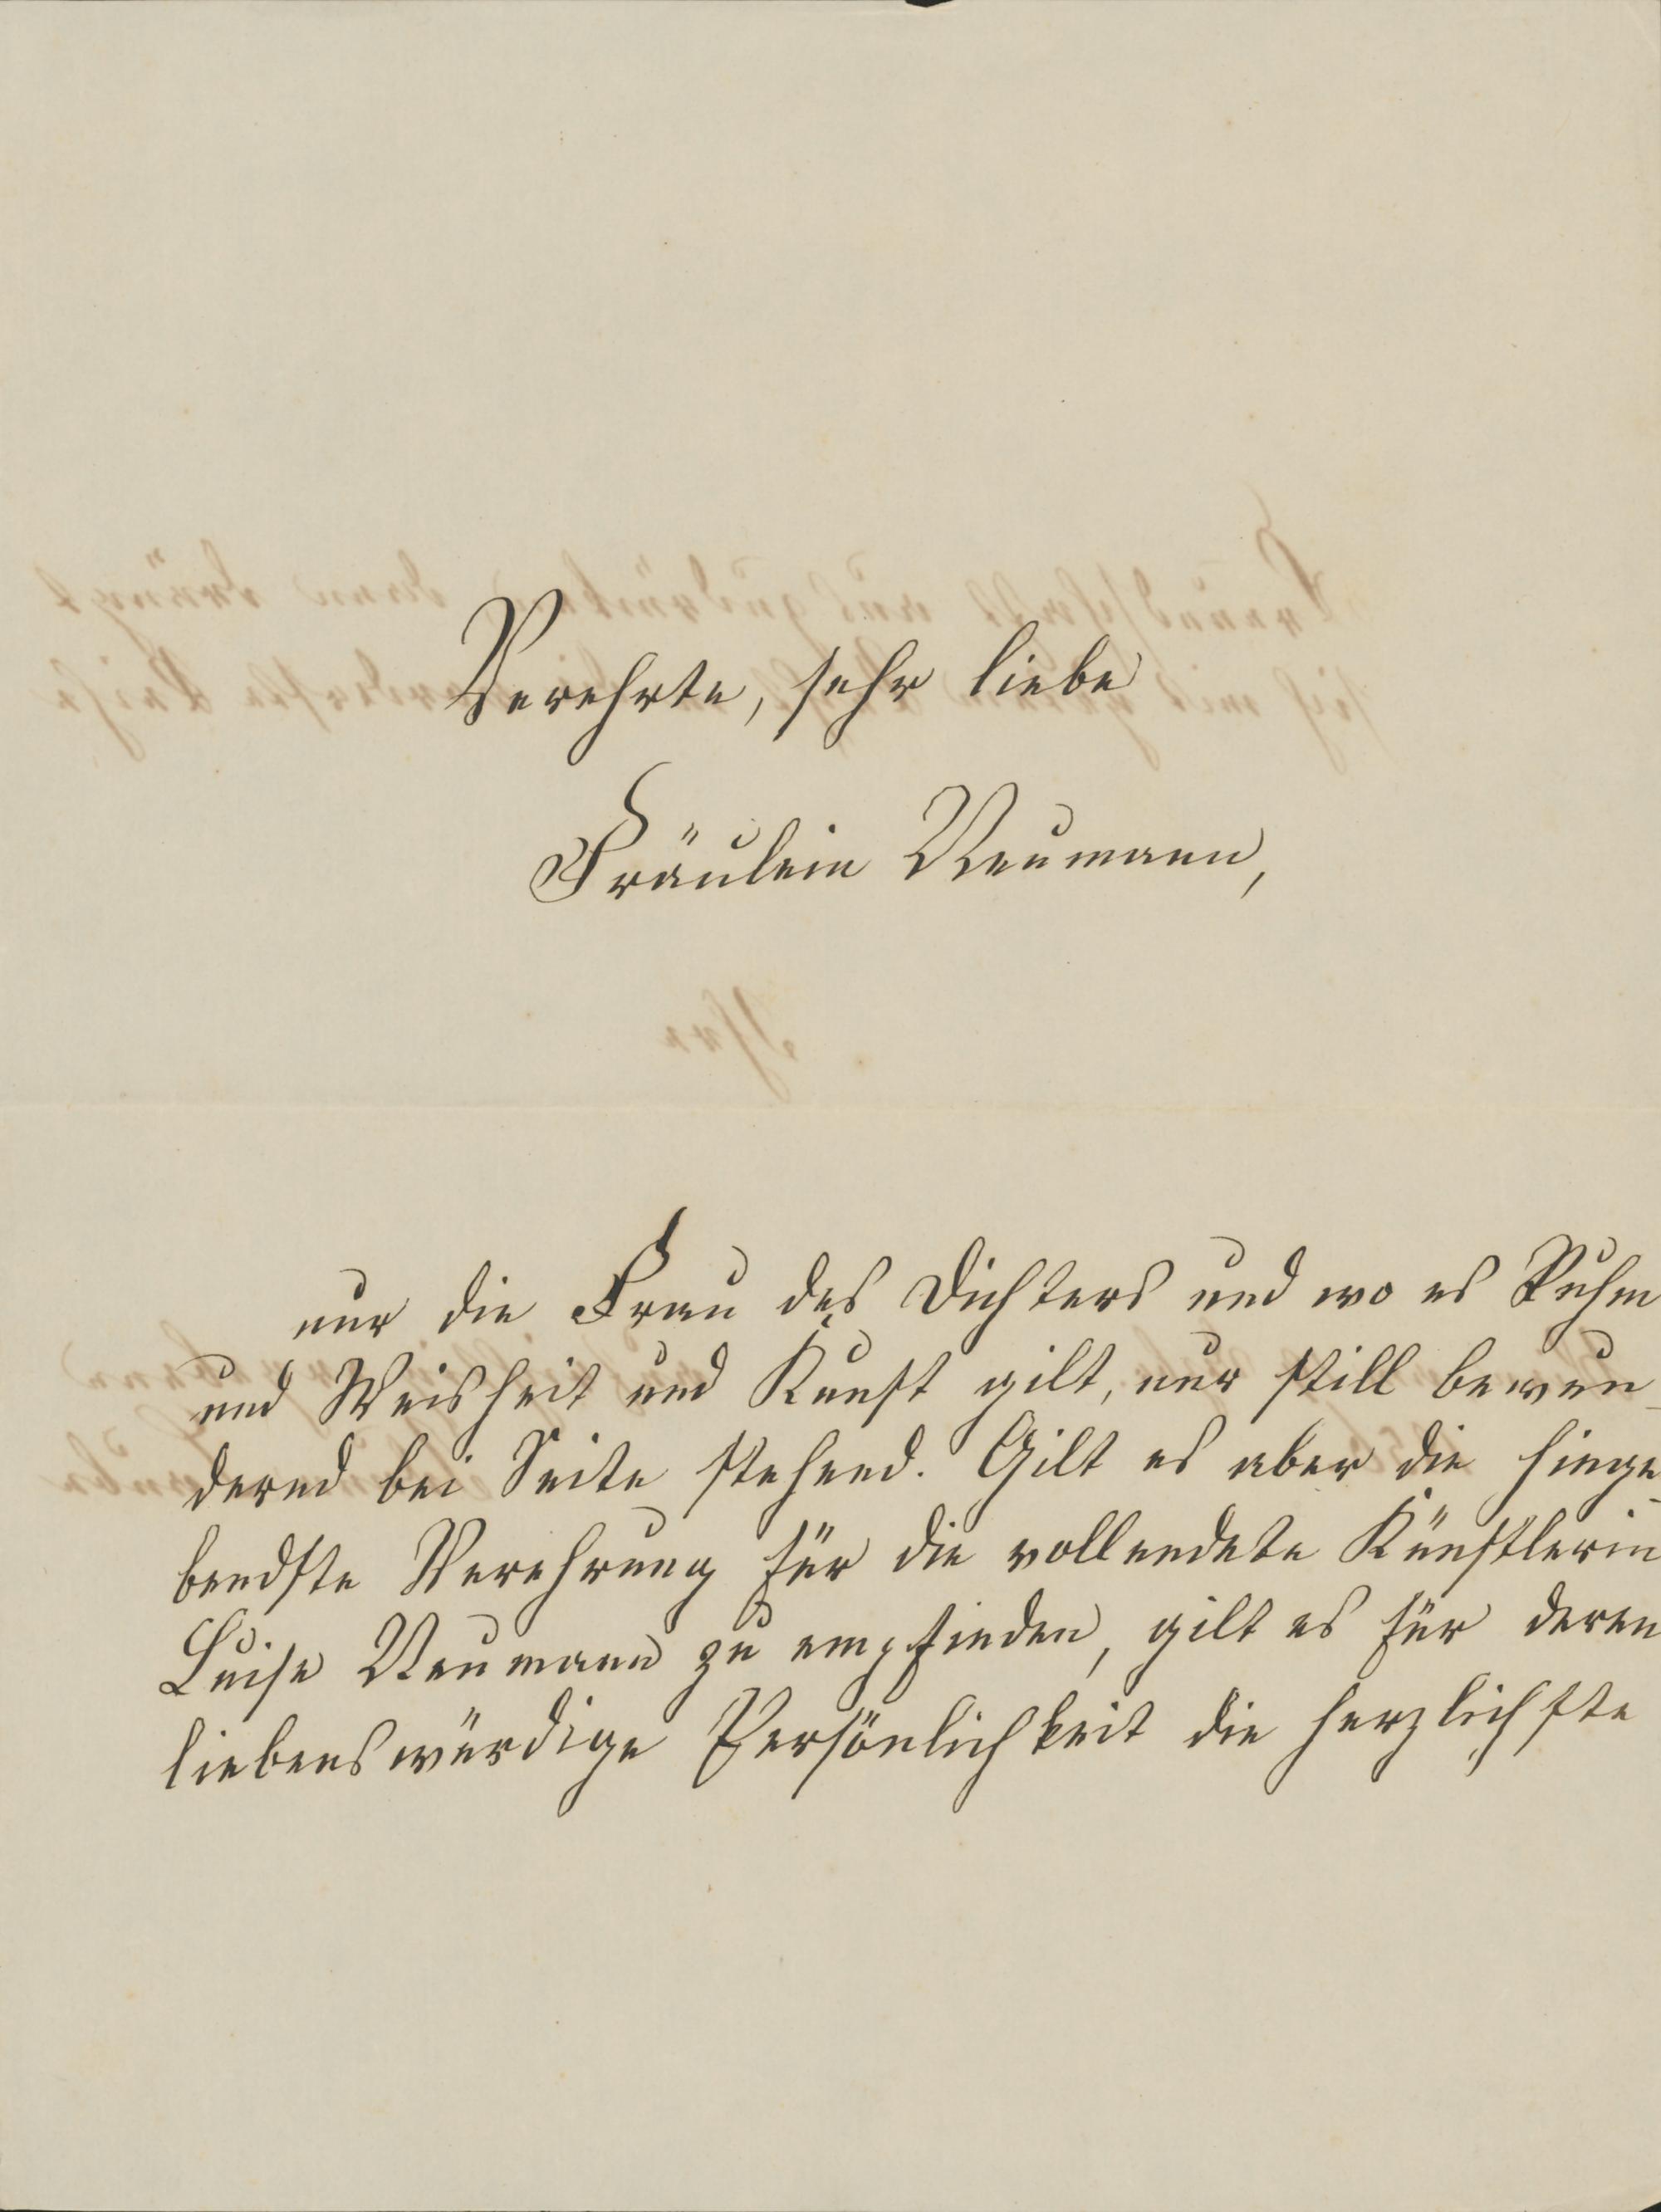 Verehrte, sehr liebe
Fräulein Neumann,
nur die Frau des Dichters und wo es Ruhm
und Weisheit und Kunst gilt, nur still bewun-
dernd bei Seite stehend. Gilt es aber die hinge-
bendste Verehrung für die vollendete Künstlerin
Luise Neumann zu empfinden, gilt es für deren
liebenswürdige Persönlichkeit die herzlichste